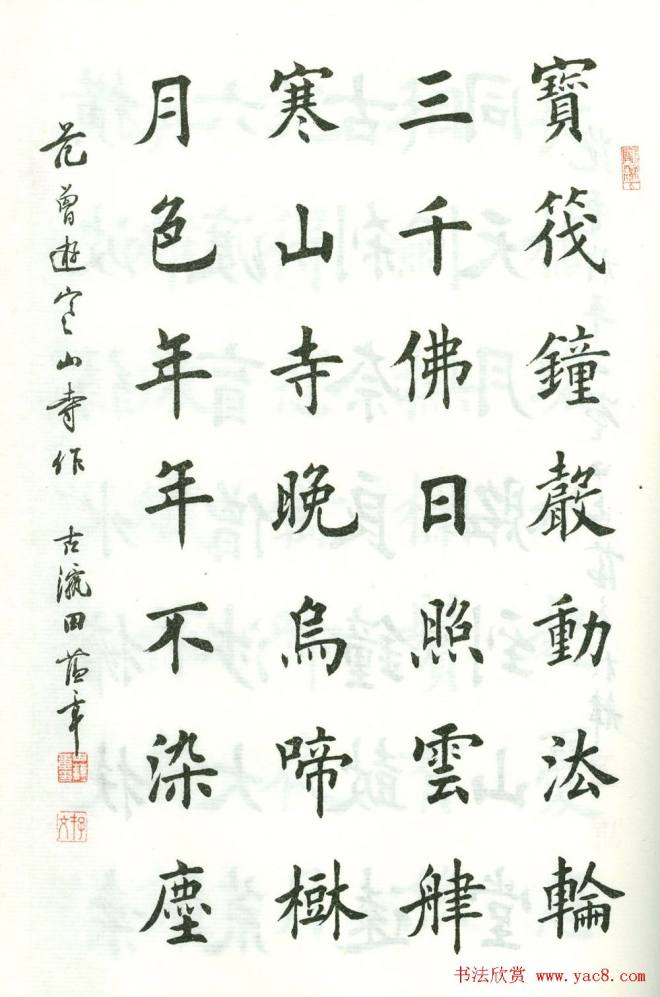 寶筏鐘聲動法輪
三千佛日照雲津
寒山寺晚烏啼樹
月色年年不染塵
范曾遊寒山寺作 古瀛田蘊章
书法欣赏 www.yac8.com